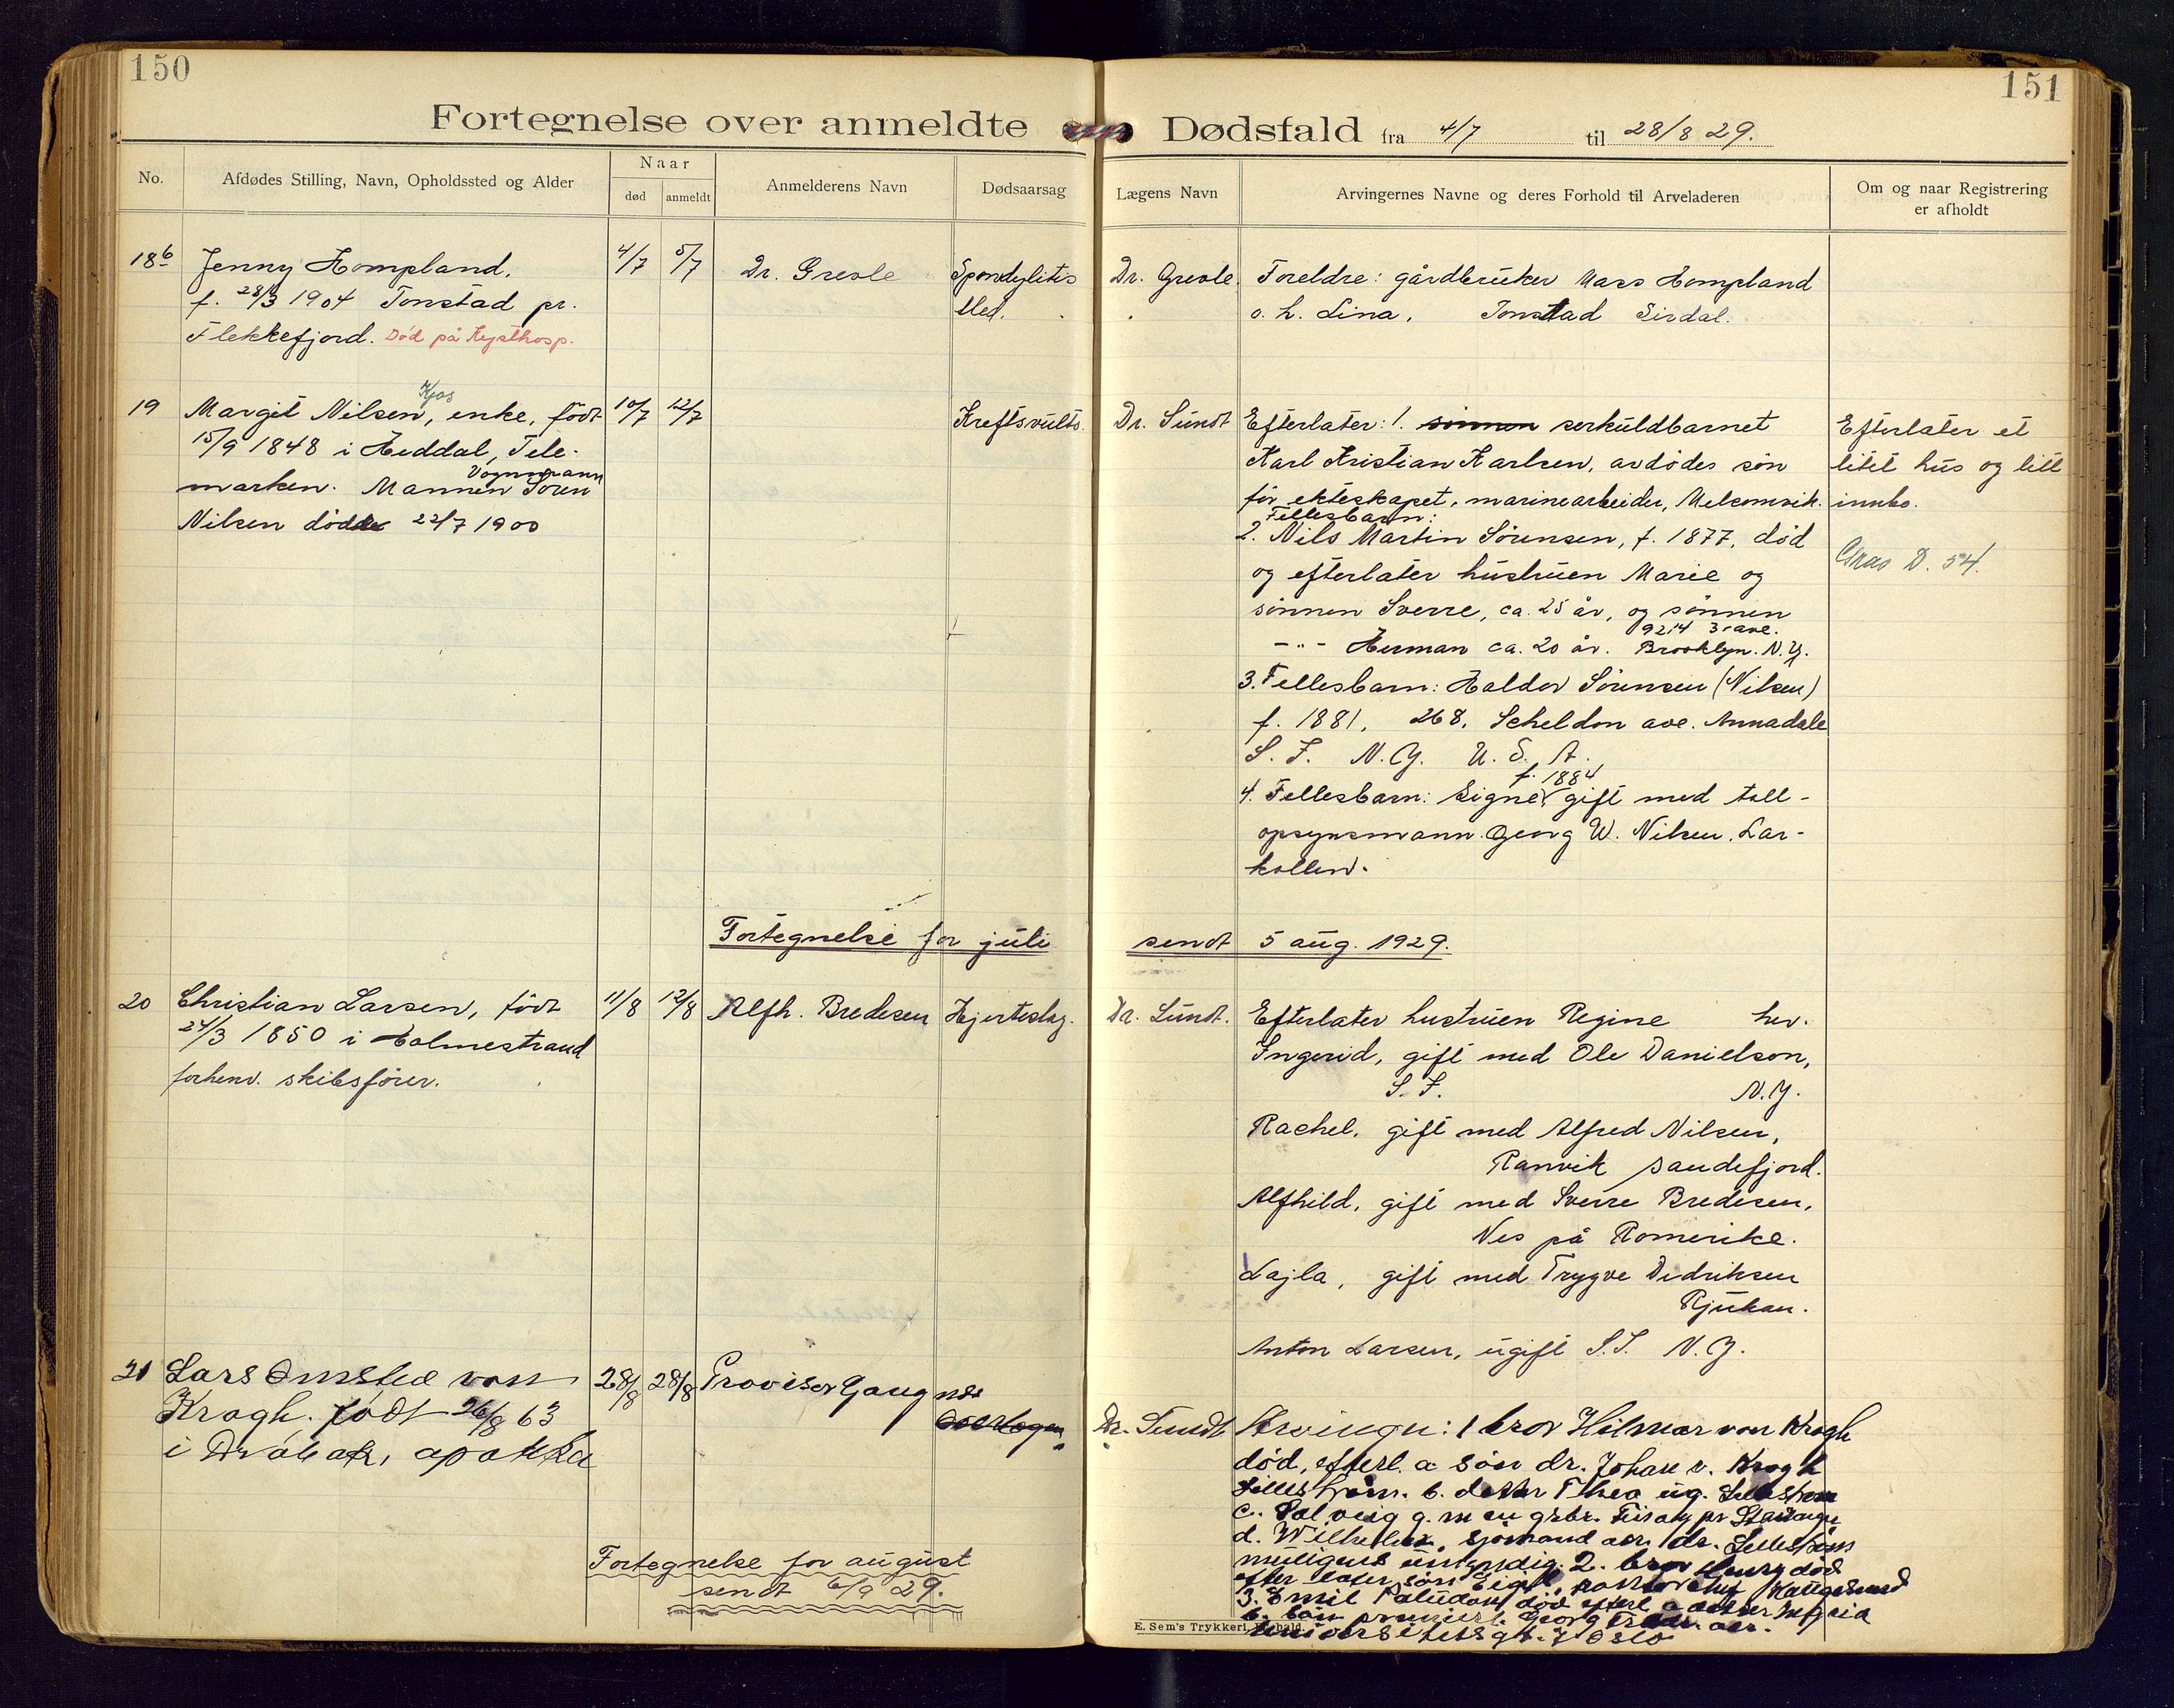 150
151
Fortegnelse over anmeldte Dødsfald fra 4/7 til 28/8 29.
No.
Afdødes Stilling, Navn, Opholdssted og Alder
Naar
død
anmeldt
Anmelderens Navn
Dødsaarsag
Lægens Navn
Arvingernes Navne og deres Forhold til Arveladeren
Om og naar Registrering
er afholdt
18 b
Jenny Hompland.
f. 28/3 1904 Tonstad pr.
Flekkefjord. Død på Kysthosp.
4/7
5/7
Dr. Grevle
Spondylitis
Med.
Dr. Grevle.
Foreldre: gårdbruker Mass Hompland
o. h. Lina, Tonstad Sirdal.
19
Kjos
Margit Nilsen, enke, født
15/9 1848 i Heddal, Tele-
Vognmann
marken. Mannen Søren
Nilsen døde 22/7 1900
10/7
12/7
Kreftsvulst
Dr. Sundt
Efterlater: 1. sønnen særkuldbarnet
Karl Kristian Karlsen, avdødes søn
før ekteskapet, marinearbeider, Melsomvik.
Fellesbarn:
2. Nils Martin Sørensen, f. 1877, død
og efterlater hustruen Marie og
sønnen Sverre, ca. 25 år, og sønnen
9214 3 ave.
- " - Herman ca. 20 år. Brooklyn. N.Y.
3. Fellesbarn: Haldor Sørensen (Nilsen)
f. 1881, 268. Scheldon ave. Annadale
S. I. N.Y. U. S. A.
f. 1884
4. Fellesbarn: Signe, gift med toll-
opsynsmann Georg W. Nilsen. Lar-
kollen.
Efterlater et
litet hus og litt
innbo.
D. 54.
Fortegnelse for juli
sendt 5 aug. 1929.
20
Christian Larsen, født
24/3 1850 i Holmestrand
forhenv. skibsfører.
11/8
12/8
Alfh. Bredesen
Hjerteslag.
Dr. Sundt.
Efterlater hustruen Regine her.
Ingerid, gift med Ole Danielson,
S. I. N.Y.
Rachel, gift med Alfred Nilsen,
Ranvik Sandefjord.
Alfhild, gift med Sverre Bredesen,
Nes på Romerike.
Lajla, gift med Trygve Didriksen
Rjukan.
Anton Larsen, ugift S.I. N.Y.
21
Lars Omsted von
Krogh. født 26/8 63
i Drøbak, apoteker
28/8
28/8
Provisor Gaugnæs
Overlægen
Dr. Sundt
Arvinger: 1 bror Hilmar von Krogh
død, efterl. a søn dr. Johan v. Krogh
Lillestrøm. b. datter Thea ug. Lillestrøm
c. Solveig g. m en grbr. pr Stavanger
d. Wilhelm, sjømand adr. dr. Lillestrøm
muligens umyndig. 2. bror Henry død
efter later søn Eigil, Haugesund
3. Emil Paludan død efterl a datter
b. søn premierl. Georg adr.
Universitetsgt. 7 Oslo
Fortegnelse for august
sendt 6/9 29.
E. Sem's Trykkeri,